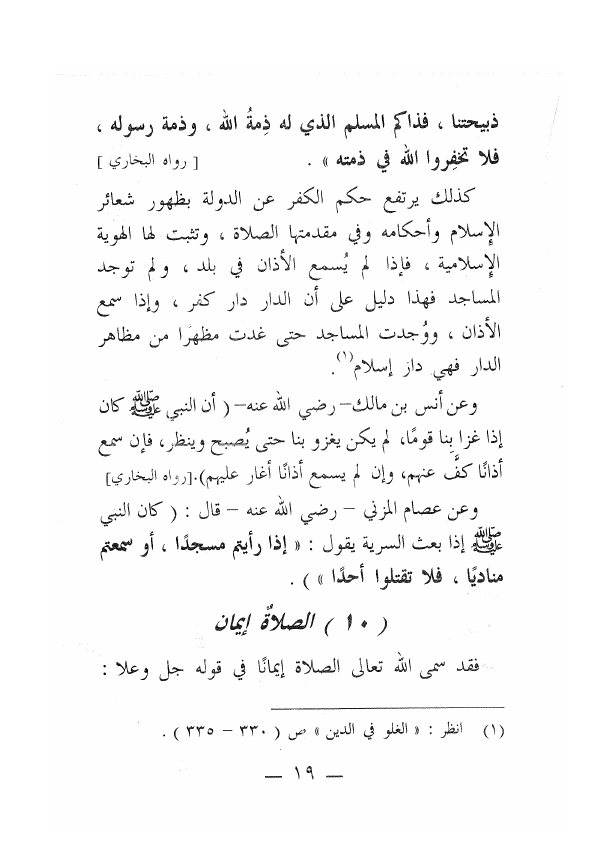 ذبيحتنا ، فذاكم المسلم الذي له ذِمةُ الله ، وذمة رسوله ،
فلا تخفِروا الله في ذمته » . [ رواه البخاري ]
كذلك يرتفع حكم الكفر عن الدولة بظهور شعائر
الإسلام وأحكامه وفي مقدمتها الصلاة ، وتثبت لها الهوية
الإسلامية ، فإذا لم يُسمع الأذان في بلد ، ولم توجد
المساجد فهذا دليل على أن الدار دار كفر ، وإذا سمع
الأذان ، ووُجدت المساجد حتى غدت مظهرًا من مظاهر
الدار فهي داز إسلام(١).
وعن أنس بن مالك– رضي الله عنه–( أن النبي ﷺ كان
إذا غزا بِنا قومًا، لم يكن يغزو بنا حتى يُصبح وينظر، فإن سمع
أذانًا كفَّ عنهم، وإن لم يسمع أذانًا أغار عليهم).[رواه البخاري]
وعن عصام المزني – رضي الله عنه – قال : ( كان النبي
ﷺ إذا بعث السرية يقول : « إذا رأيتم مسجدًا ، أو سمعتم
مناديًا ، فلا تقتلوا أحدًا » ) .
( ١٠ ) الصلاةُ إيمان
فقد سمى الله تعالى الصلاة إيمانًا في قوله جل وعلا :
(١) انظر : « الغلو في الدين » ص ( ٣٣٠ – ٣٣٥ ) .
– ١٩ –